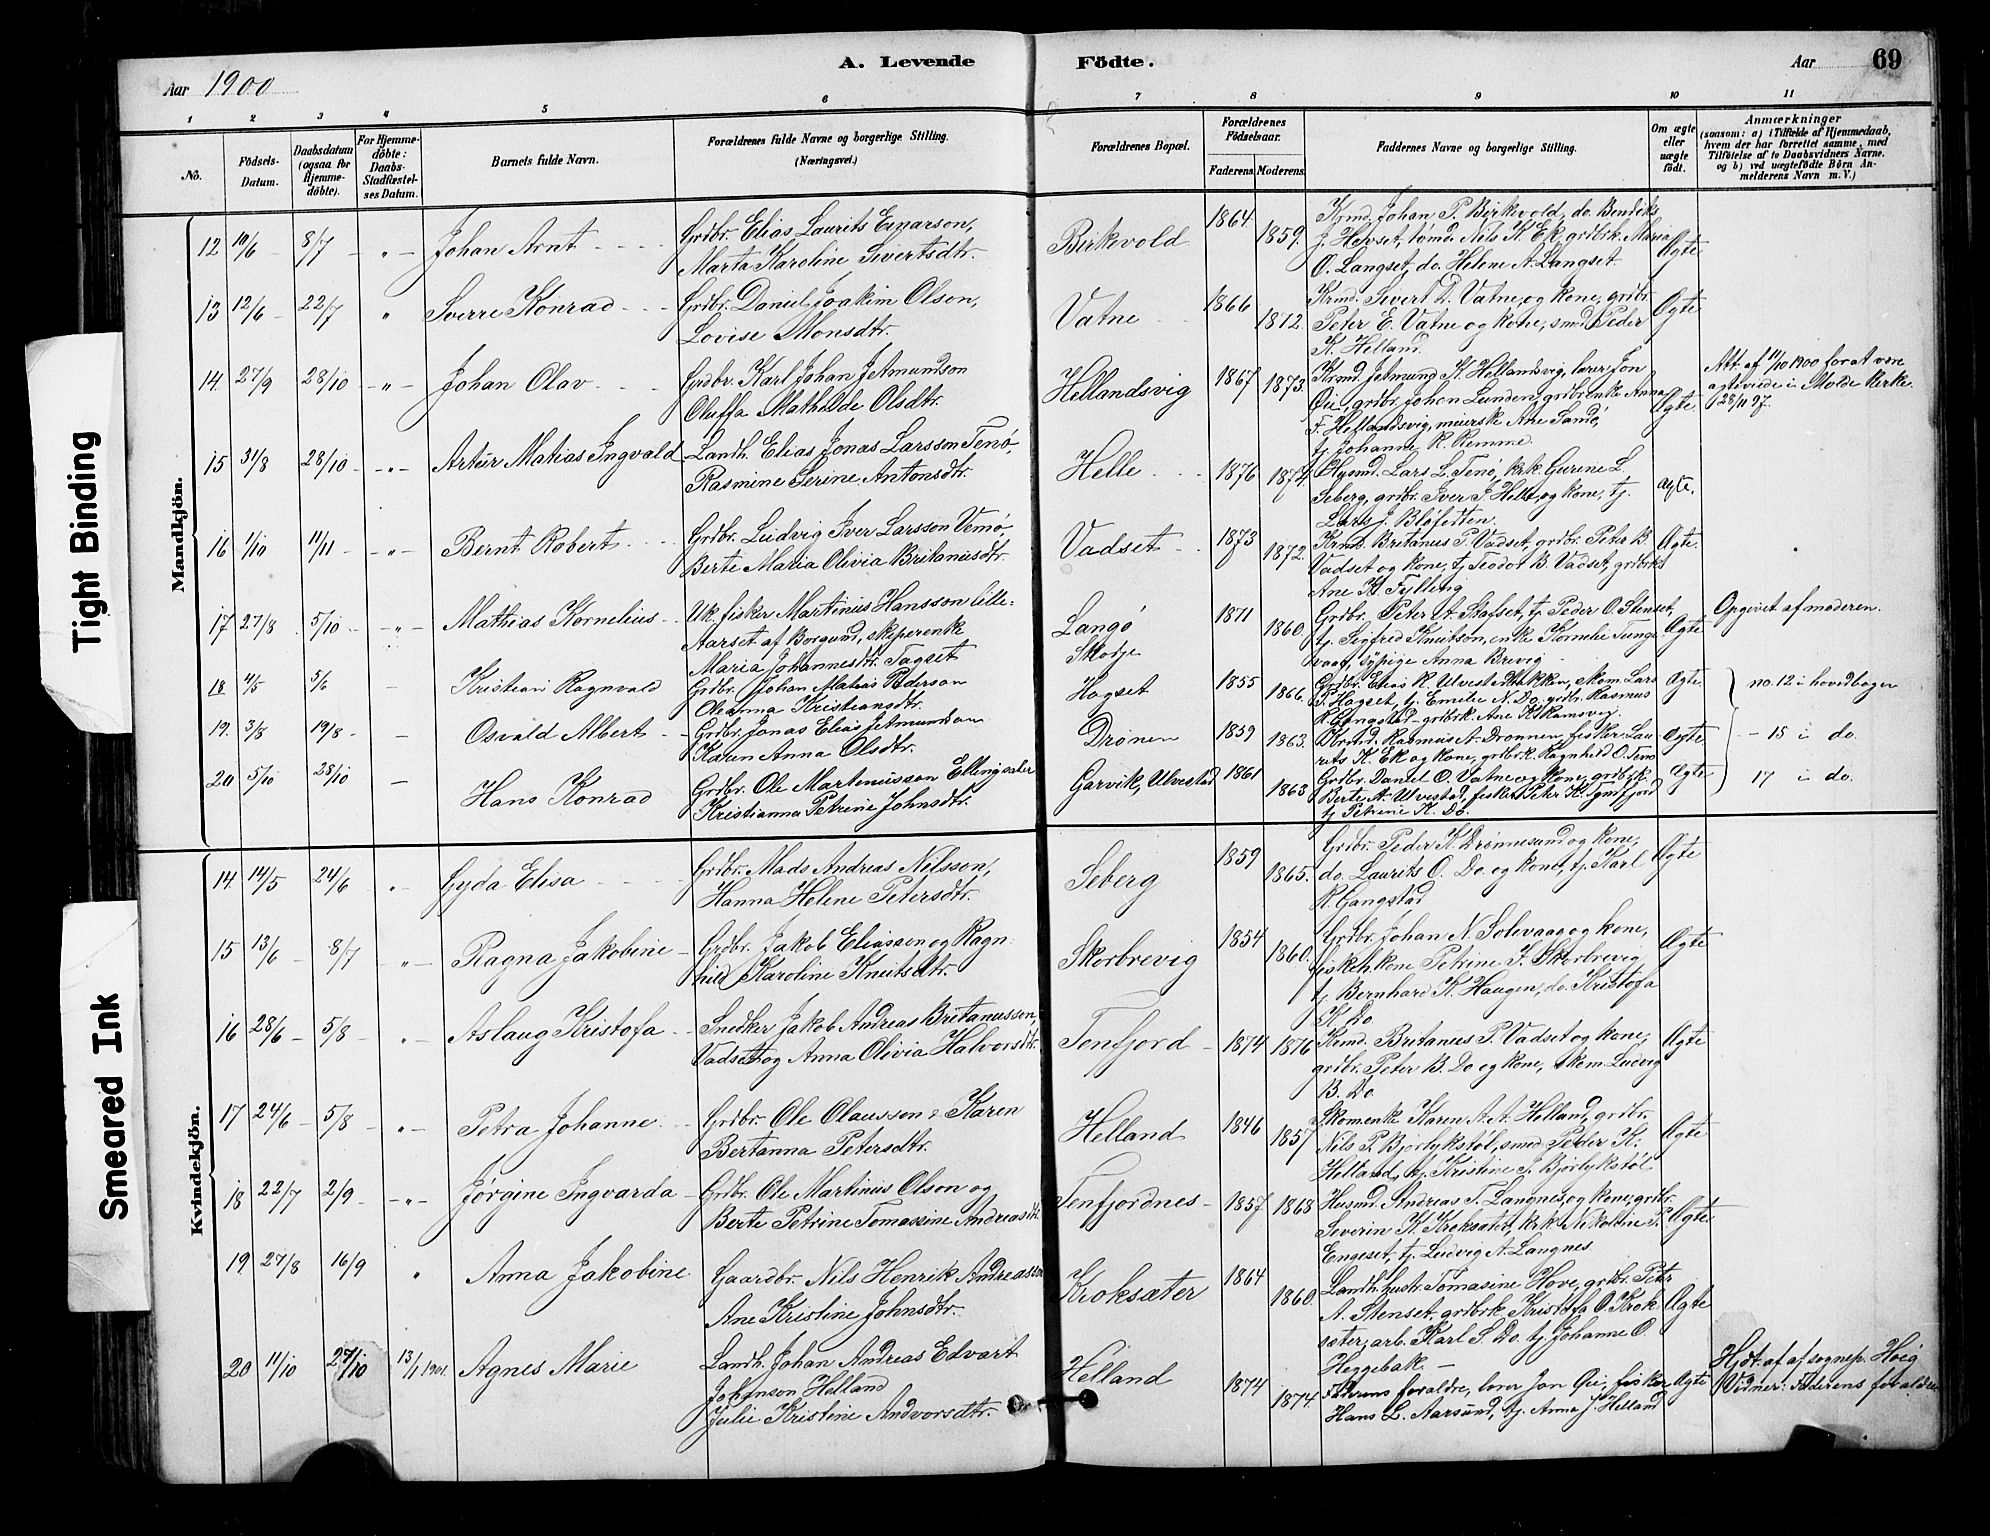 Tight Binding
Smeared Ink
Aar 1900
A. Levende Födte.
Aar
69
1 2 3 4 5 6 7 8 9 10 11
No.
Födsels-Datum.
Daabsdatum (ogsaa for Hjemme-döbte).
For Hjemme-döbte: Daabs-Stadfæstel-ses Datum.
Barnets fulde Navn.
Forældrenes fulde Navne og borgerlige Stilling.
(Næringsvei.)
Forældrenes Bopæl.
Forældrenes Födselsaar.
Faderens. Moderens.
Faddernes Navne og borgerlige Stilling.
Om ægte eller uægte födt.
Anmærkninger
(saasom: a) i Tilfælde af Hjemmedaab, hvem der har forrettet samme, med Tilföielse af to Daabsvidners Navne. og b) ved uægtefödte Börn An-melderens Navn m. V.)
Mandkjön.
12 10/6 8/7 - " - Johan Arnt
Grdbr. Elias Laurits Einarson,
Marta Karoline Sivertsdtr.
Birkevold 1864 1859.
Krmd. Johan P. Birkevold, do. Bendik
J. Helset, tømd. Nils K. Ek, grdbrk. Maria
O. Langset, do. Helene A. Langset.
Ægte
13 12/6 22/7 " Sverre Konrad
Grdbr. Daniel Joakim Olson,
Lovise Monsdtr.
Vatne 1866 1872.
Krmd. Sivert D. Vatne og kone, grdbr.
Peter E. Vatne og kone, smed Peder
K. Helland.
Ægte
14. 27/9 28/10 - " - Johan Olav
Grdbr. Karl Johan Jetmundson
Oluffa Mathilde Olsdtr.
Hellandsvig 1867 1873.
Krmd. Jetmund K. Hellandsvig, lærer Jon
Øie, grdbr. Johan Lunden, grdbrenke Anna
F. Hellandsvig, meierske Ane Sandø,
tj. Johanne R. Remme.
Ægte
Att. af 11/10 1900 for at være
ægteviede i Molde kirke
28/11 97.
15 31/8 28/10 - " - Artur Matias Ingvald
Landh. Elias Jonas Larsson Tenø,
Rasmine Serine Antonsdtr.
Helle 1876 1874.
Lars L. Tenø, krk. Gurine L.
Seberg, grdbr. Iver J. Helle og kone, tj.
Lars J.
Ægte.
16 1/10 11/11 - " - Bernt Robert
Grdbr. Ludvig Iver Larsson Vemø,
Berte Maria Olivia Britanusdtr.
Vadset 1873 1872.
Krmd. Britanus P. Vadset, grdbr. Peter B.
Vadset og kone, tj. Teodor B. Vadset, grdbrk.
Ane K. Fylling
Ægte
17 27/8 5/10 - " - Mathias Kornelius
Uk. fisker Martinus Hansson lille-
Aarset af Borgund, skiperenke
Maria Johannesdtr. Tagset
Langø
Skodje
1871 1860.
Grdbr. Peter A. Stafset, tj. Peder O. Stenset,
tj. Sigfred Knutson, enke Kornelie Tunge
vaag, sypige Anna Brevig
Ægte
Opgivet af moderen.
18 4/5 5/6 - Kristian Ragnvald
Grdbr. Johan Matias Pederson
Oleanna Kristiansdtr.
Hagset 1855 1866.
Grdbr. Elias R. Ulvestad, skom. Lars
P. Hagset, tj. Emilie N. Do, grdbr. Rasmus
R. Gangstad, grdbrk. Ane K.
Ægte
no. 12 i hovedbogen
19. 3/8 19/8 - Osvald Albert
Grdbr. Jonas Elias Jetmundson
Karen Anna Olsdtr.
Drønen 1859 1863.
Krmd. Rasmus A. Drønnen, fisker Lau
rits K. Ek og kone, grdbrk. Ragnhild O. Tenø
Ægte
- 15 i do.
20 5/10 28/10 - Hans Konrad
Grdbr. Ole Martinusson Ellingsæter
Kristianna Petrine Johnsdtr.
Garvik, Ulvestad 1861 1863
Grdbr. Daniel O. Vatne og kone, grdbrk.
Berte A. Ulvestad, fisker Peter K.
tj. Petrine K. Do.
Ægte
17 i do.
Kvindekjön.
14 14/5 24/6 " Gyda Elisa
Grdbr. Mads Andreas Nilsson,
Hanna Helene Petersdtr.
Seberg 1859 1865.
Grdbr. Peder K. Drønnesund og kone,
do. Laurits O. Do. og kone, tj. Karl
R. Gangstad
Ægte
15 13/6 8/7 - " - Ragna Jakobine
Grdbr. Jakob Eliasson og Ragn-
hild Karoline Knutsdtr.
Skorbrevig 1854 1860.
Grdbr. Johan N. Solevaag og kone,
fiskerk. kone Petrine J. Skorbrevig
tj. Bernhard K. Haugen, do. Kristofa
K. Do.
Ægte
16 28/6 5/8 - " - Aslaug Kristofa
Snedker Jakob Andreas Britanusson,
Vadset og Anna Olivia Halvorsdtr.
Tenfjord 1874 1876
Krmd. Britanus P. Vadset og kone,
grdbr. Peter B. Do og kone, skom. Ludvig
B. Do
Ægte
17 24/6 5/8 - " - Petra Johanne
Grdbr. Ole Olausson & Karen
Bertanna Petersdtr.
Helland 1846 1857
Skomenke Karen A. A. Helland, grdbr.
Nils P. Bjørlykstøl, smed Peder K.
Helland, tj. Kristine P. Bjørlykstøl.
Ægte
18 22/7 2/9 - " - Jørgine Ingvarda
Grdbr. Ole Martinus Olson og
Berte Petrine Tomassine Andreasdtr.
Tenfjordnes 1857 1868
Husmd. Andreas T. Langnes og kone, grdbr.
Severin K. Kroksæter, krk. Nikoline P.
Engeset, tj. Ludvig A. Langnes.
Ægte
19 27/8 16/9 " Anna Jakobine
Gaardbr. Nils Henrik Andreasson
Ane Kristine Johnsdtr.
Kroksæter 1864 1860.
Landh. hustr. Tomasine Hove, grdbr. Peter
A. Stenset, grdbrk. Kristofa O. Krok
sæter, arb. Karl S. Do. tj. Johanne O.
Heggebak. -
Ægte
20 11/10 27/10 13/1 1901. Agnes Marie
Landh. Johan Andreas Edvart
Johanson Helland
Julie Kristine Andvorsdtr.
Helland 1874 1874.
Faderens forældre, lærer Jon Øie, fisker
Hans L. Aarsund, tj. Anna J. Helland
Ægte
Hjdt. af af sognep. Høig
Vidner: Faderens forældre